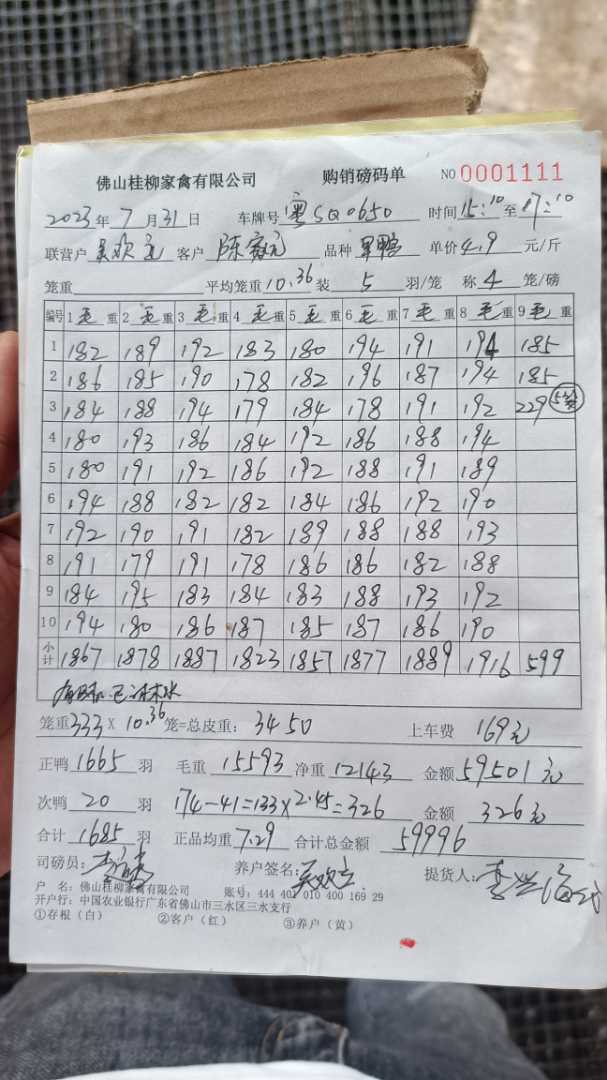 佛山桂柳家禽有限公司 购销磅码单 NO 0001111
2023年7月31日 车牌号 粤SQ0650 时间 15:10 至 17:10
联营户 吴欢 客户 陈 品种 单价 4.9 元/斤
笼重 平均笼重 10.36 装 5 羽/笼 称 4 笼/磅
编号 1 毛重 2 毛重 3 毛重 4 毛重 5 毛重 6 毛重 7 毛重 8 毛重 9 毛重
1 182 189 192 183 180 194 191 194 185
2 186 185 190 178 182 196 187 194 185
3 184 188 194 179 184 178 191 192 229
4 180 193 186 184 192 186 188 194
5 180 191 192 186 192 188 191 189
6 194 188 182 182 184 186 192 190
7 192 190 191 182 189 188 188 193
8 191 179 191 178 186 186 182 188
9 184 195 183 184 183 188 193 192
10 194 180 186 187 185 187 186 190
小计 1867 1878 1887 1823 1857 1877 1889 1916 599
笼重 333 X 10.36 笼=总皮重: 3450 上车费 169元
正鸭 1665 羽 毛重 15593 净重 12143 金额 59501元
次鸭 20 羽 174-41=133×2.45=326 金额 326元
合计 1685 羽 正品均重 7.29 合计总金额 59996
司磅员: 养户签名: 吴欢 提货人: 李
户 名: 佛山桂柳家禽有限公司 账号: 444 402 010 400 169 29
开户行: 中国农业银行广东省佛山市三水区三水支行
①存根（白） ②客户（红） ③养户（黄）